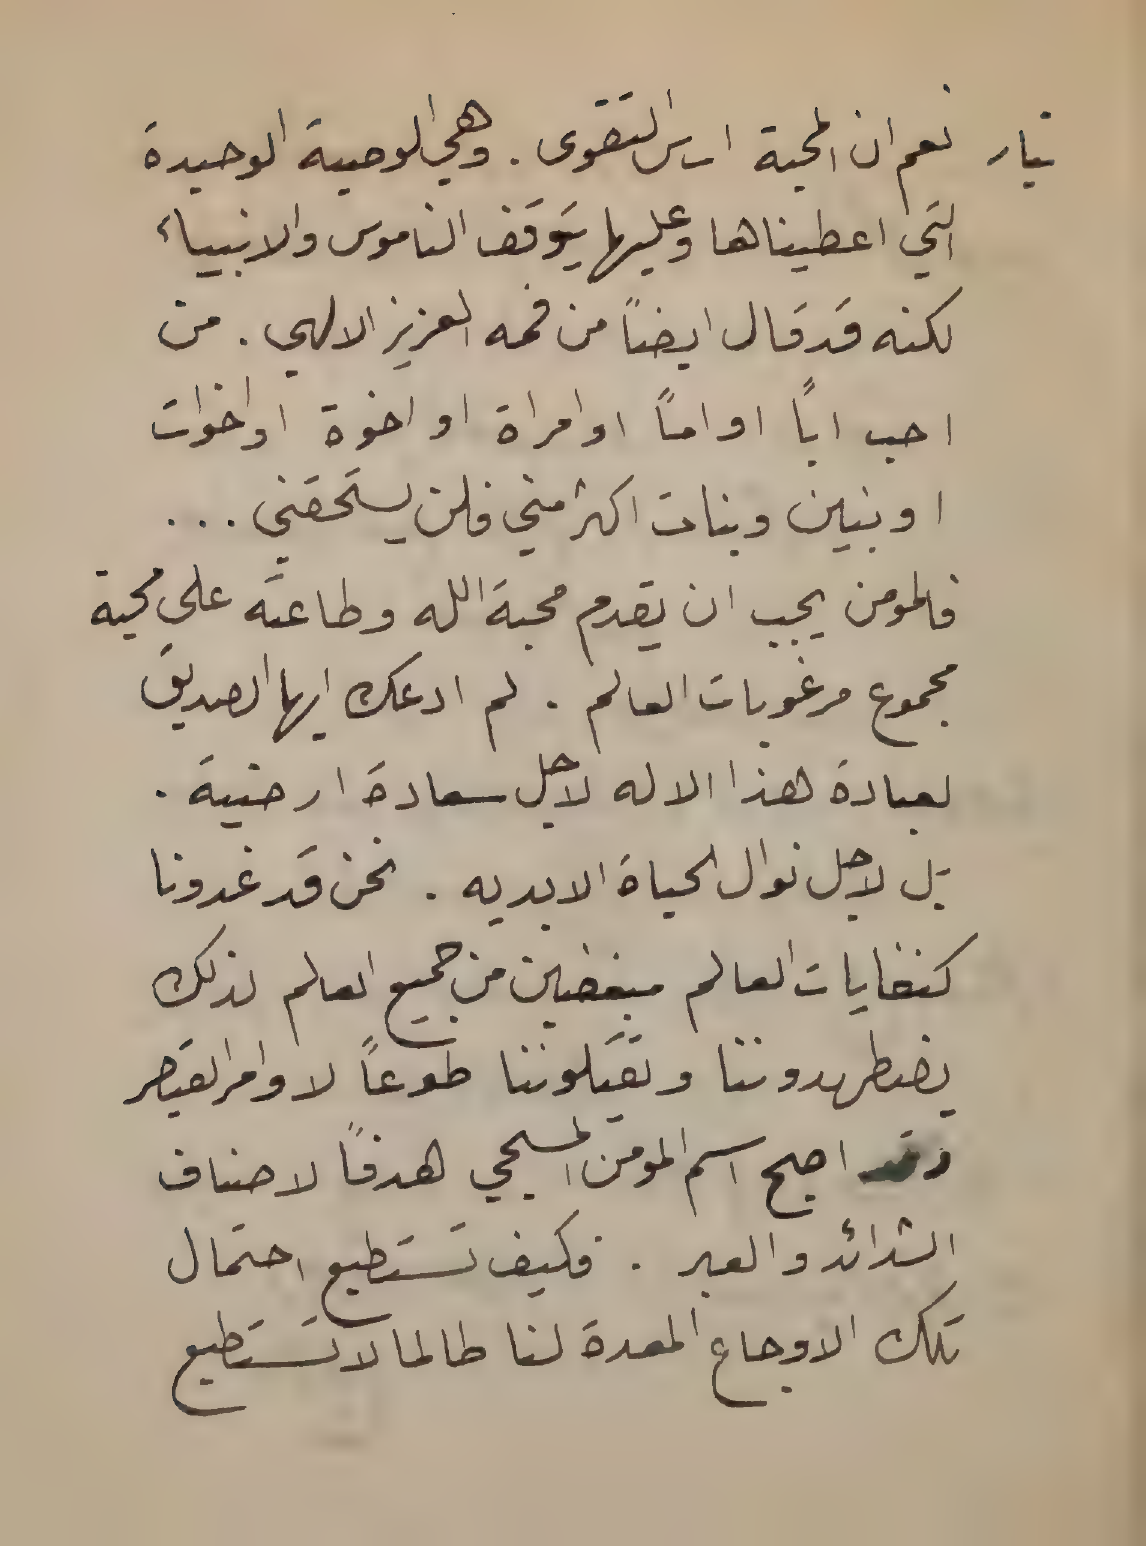 تيار نعم ان المحبة اساس التقوى . وهي الوصية الوحيدة
التي اعطيناها وعليها يتوقف الناموس والانبياء
لكنه قد قال ايضاً من فمه العزيز الالهي . من
احب اباً او اماً او امراة او اخوة او اخوات
او بنين وبنات اكثر مني فلن يستحقني ...
فالمومن يجب ان يقدم محبة الله وطاعته على محبة
مجموع مرغوبات العالم . لم ادعك ايها الصديق
لعبادة هذا الاله لاجل سعادة ارضية .
بل لاجل نوال الحياة الابديه . نحن قد غدونا
كنفايات العالم مبغضين من جميع العالم لذلك
يضطهدوننا ويقتلوننا طوعاً لاوامر القيصر
وقد اصبح اسم المومن المسيحي هدفاً لاصناف
الشدائد والعبر . فكيف تستطيع احتمال
تلك الاوجاع المعدة لنا طالما لا تستطيع